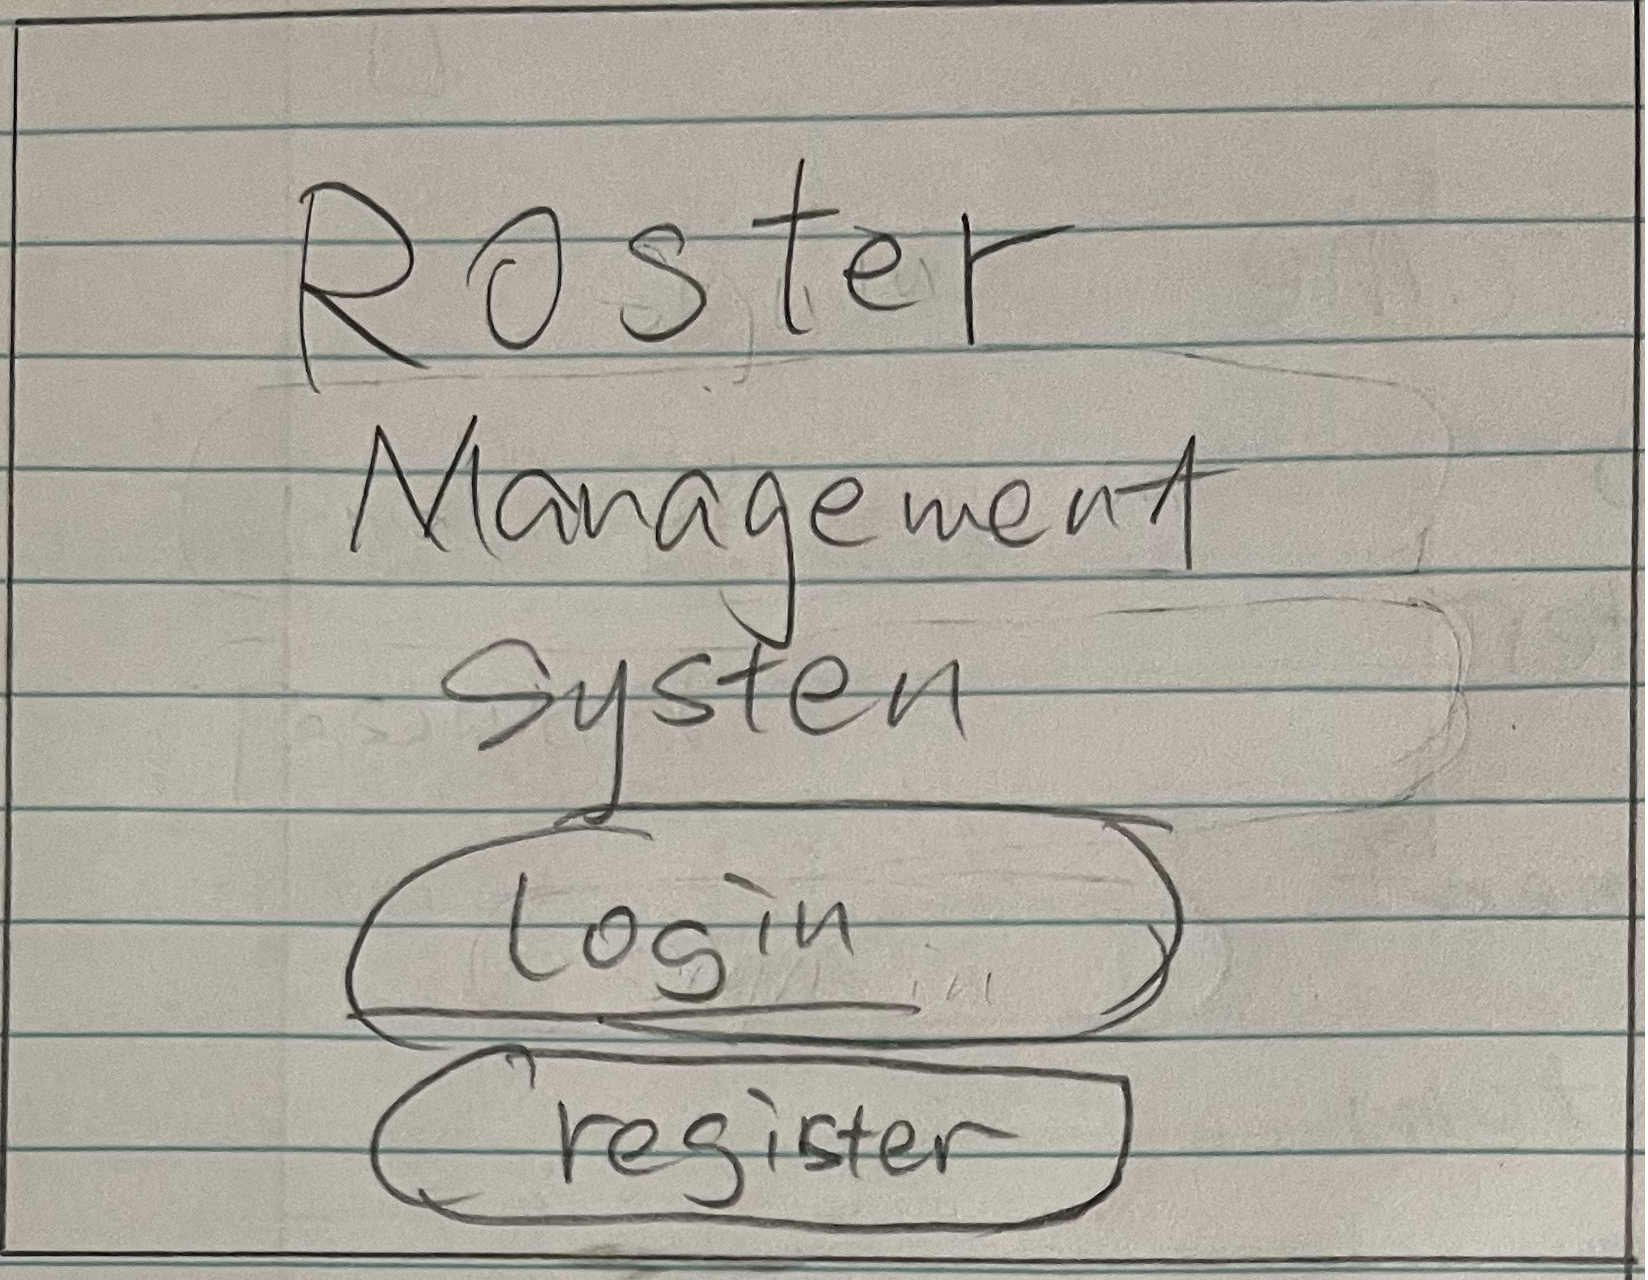 Roster
Management
Systen
Login
register